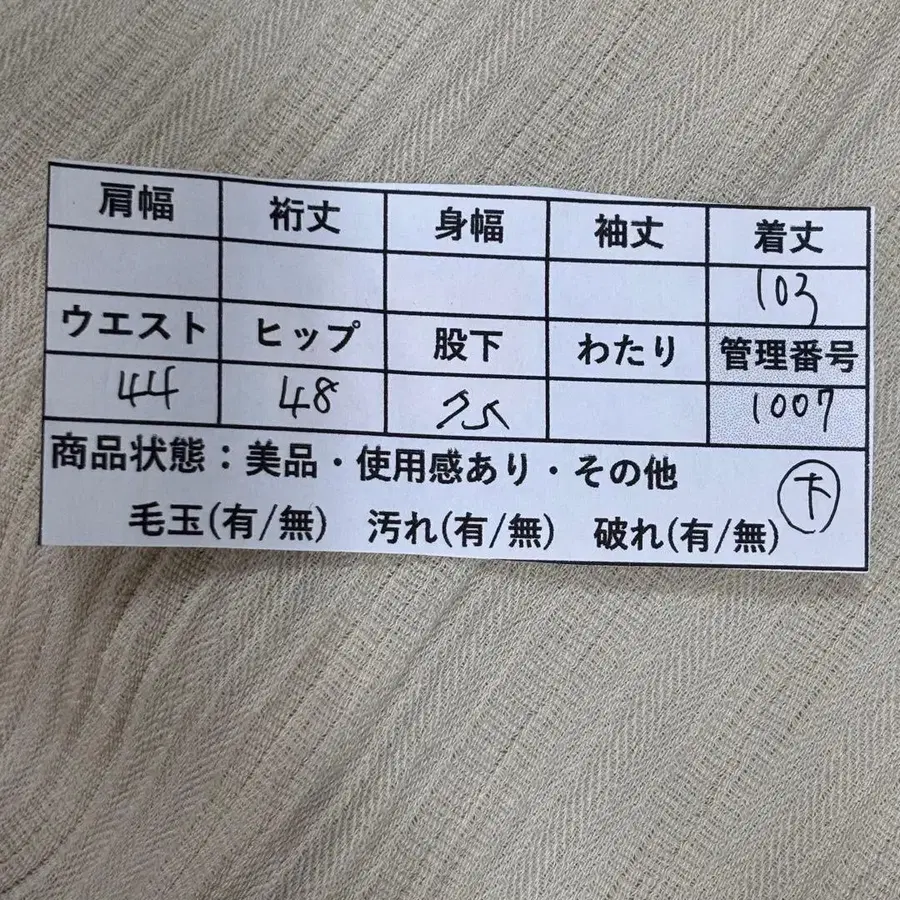 肩幅 裄丈 身幅 袖丈 着丈
103
ウエスト ヒップ 股下 わたり 管理番号
44 48 75 1007
商品状態：美品・使用感あり・その他
毛玉(有/無) 汚れ(有/無) 破れ(有/無)